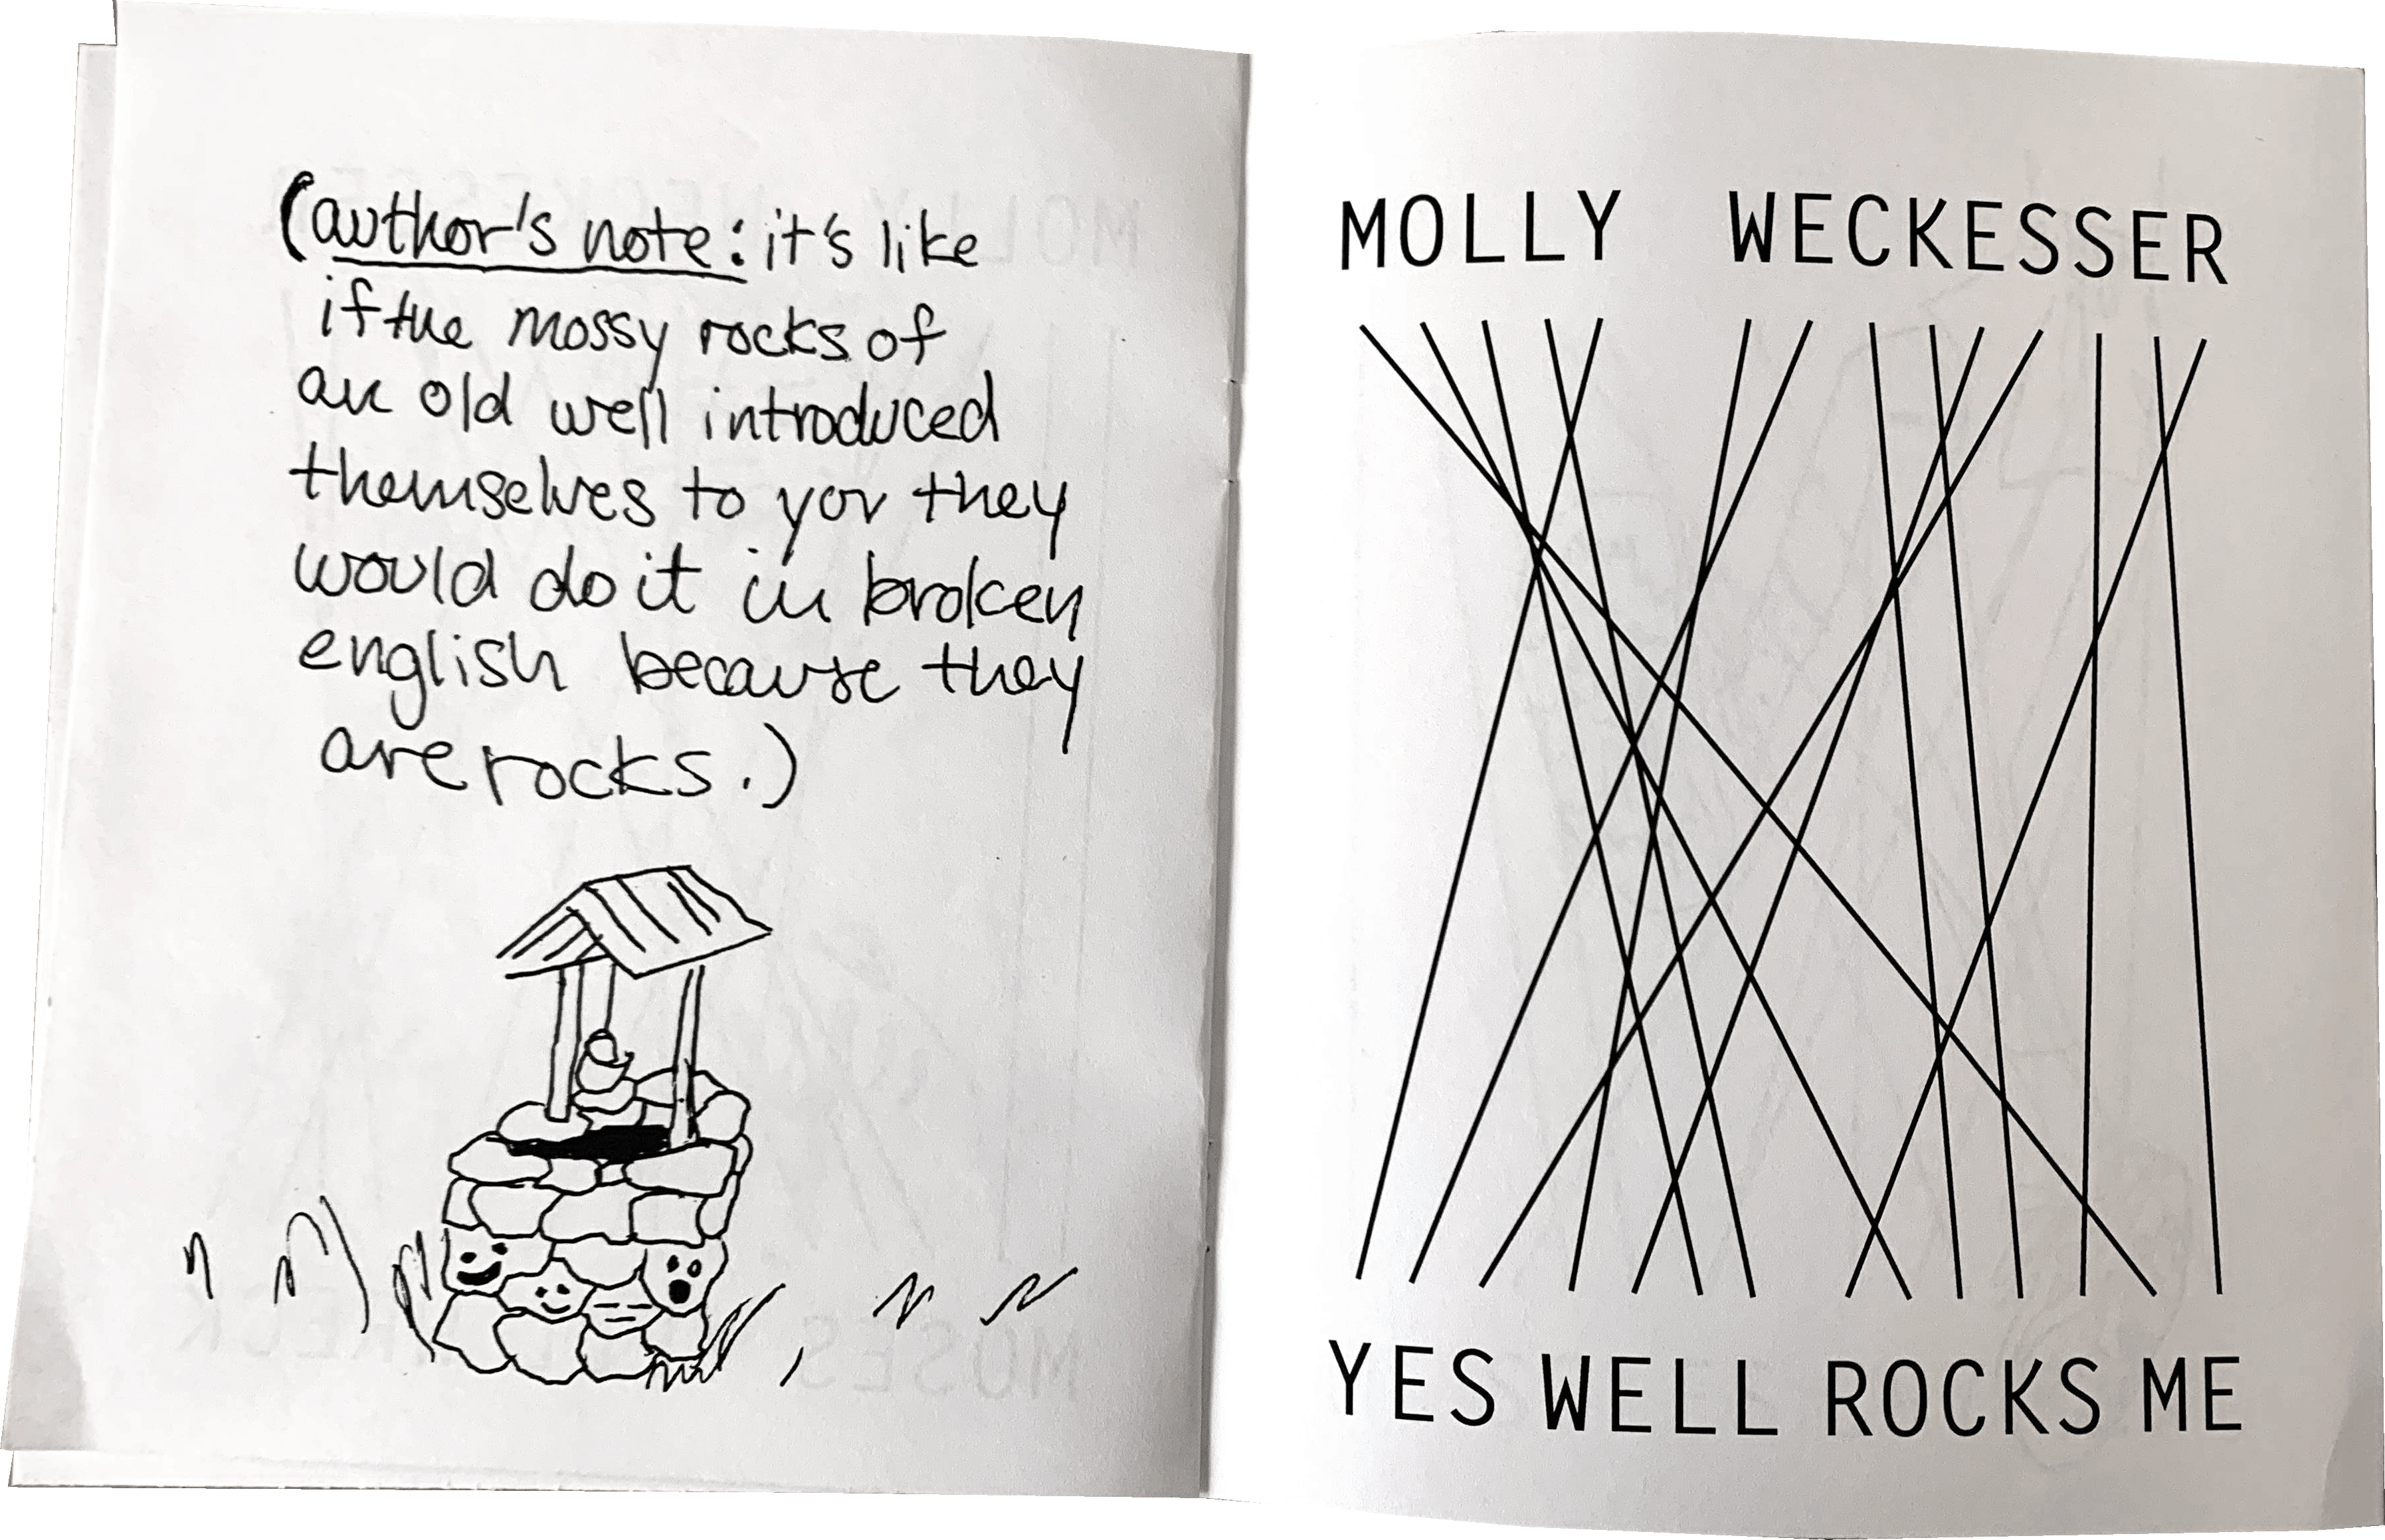 (author's note: it's like
if the mossy rocks of
an old well introduced
themselves to you they
would do it in broken
english because they
are rocks.)
MOLLY WECKESSER
YES WELL ROCKS ME